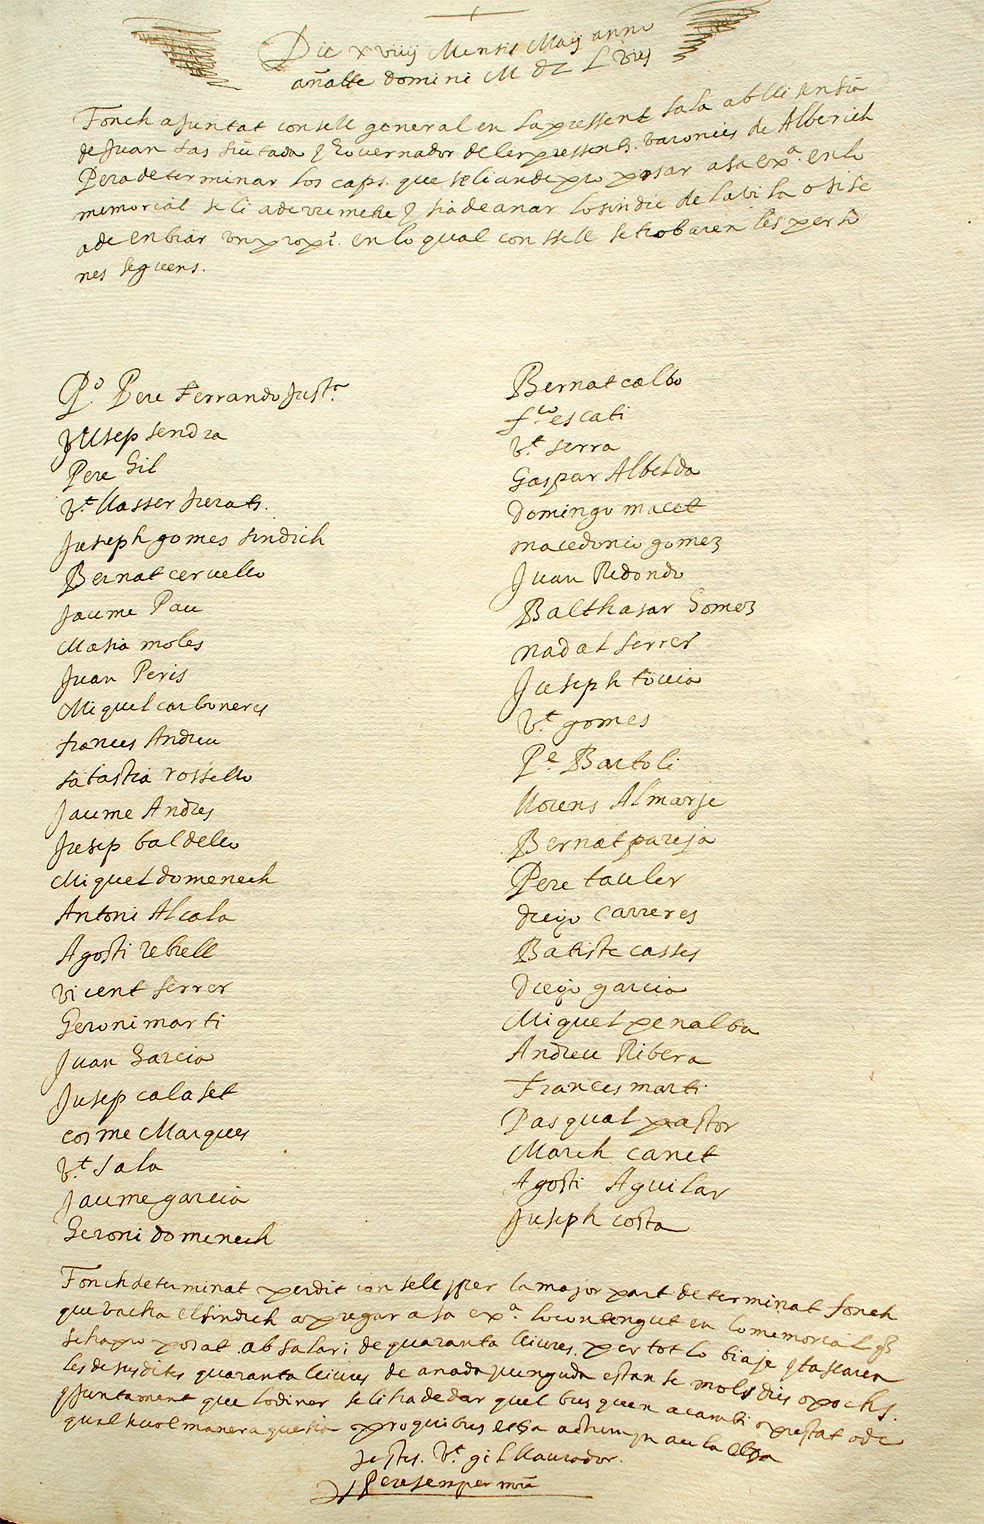 Die xviiij Mensis Maij anno
añatte domini M DC L viiij
Fonch ajuntat consell general en la pressent sala ab llisensia
de Juan Sas siutada y Governador de les pressents. baronies de Alberich
Pera determinar los caps. que se li an de pro posar a sa exª. en lo
memorial se li a de remetre y si a de anar lo sindic de la vila o si se
a de enbiar un propi. en lo qual consell se trobaren les perso
nes seguens.
Pº. Pere Ferrando Justª
Jusep sendra
Pere Gil
vt llasser Jurats.
Joseph gomes sindich
Bernat cervello
Jaume Pau
Matia moles
Juan Peris
Miquel carboneres
frances Andreu
sabastia rossello
Jaume Andres
Jusep baldello
Miquel domenech
Antoni Alcala
Agosti rebell
vicent ferrer
Geroni marti
Juan Garcia
Jusep calafet
cosme Marques
vt Sala
Jaume garcia
Geroni domenech
Bernat calbo
f.co escati
vt serra
Gaspar Albelda
Domingo macet
macedonio gomez
Juan Redondo
Balthasar Gomez
nadal ferrer
Joseph tovia
vt gomes
Pe Bartoli
llorens Almarje
Bernat pareja
Pere tauler
diego carreres
Batiste casses
Diego garcia
Miquel penalba
Andreu Ribera
Frances marti
Pasqual pastor
March canet
Agosti Aguilar
Joseph costa
Fonch determinat per dit consell y per la major part determinat fonch
que vacha el sindich a pregar a sa exª. lo contengut en lo memorial qs
se ha pro posat ab salari de quaranta lliures. per tot lo biaje y tasaren
les desusdites quaranta lliures de anada y vinguda estan se molts dies o pochs.
y juntament que lo diner se li ha de dar quel busquen a cambi o prestat o de
qual sevol manera que sia pro quibus etta actum in aula etta
Testes. vt gil llaurador.
Pere semper